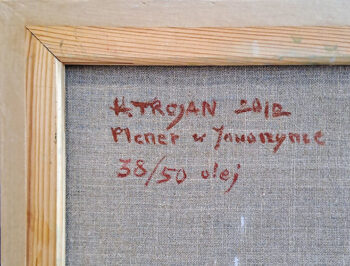 H. TROJAN 2012
Plener w Jaworzynce
38/50 olej